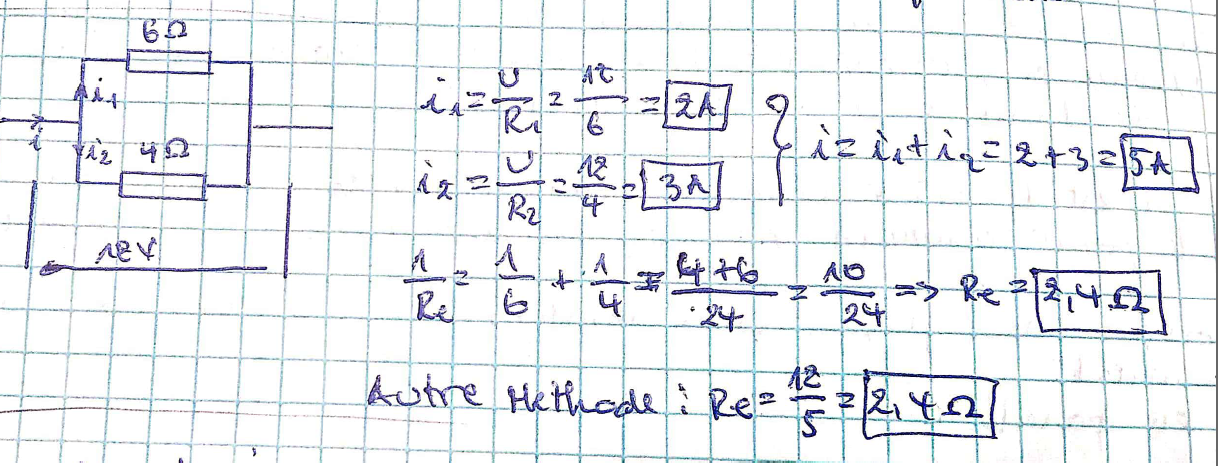 6Ω
i₁
i
i₂ 4Ω
12V
i₁ = U/R₁ = 12/6 = 2A
i₂ = U/R₂ = 12/4 = 3A
} i = i₁ + i₂ = 2 + 3 = 5A
1/Re = 1/6 + 1/4 = 4+6/24 = 10/24 => Re = 2,4 Ω
Autre Methode : Re = 12/5 = 2,4 Ω